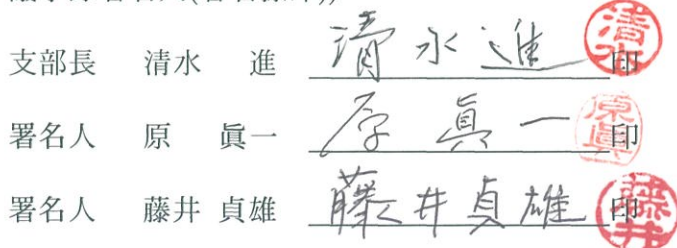 支部長 清水 進 清水進 印 清水
署名人 原 眞一 原 眞一 印 原眞
署名人 藤井 貞雄 藤井貞雄 印 藤井